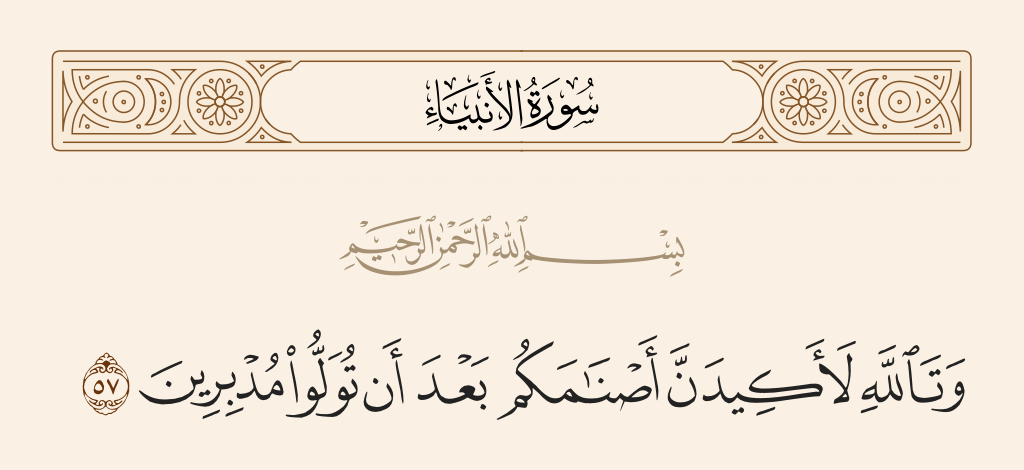 سُورَةُ الأَنبِيَاءِ
بِسْمِ ٱللَّهِ ٱلرَّحْمَٰنِ ٱلرَّحِيمِ
وَتَٱللَّهِ لَأَكِيدَنَّ أَصْنَـٰمَكُم بَعْدَ أَن تُوَلُّوا۟ مُدْبِرِينَ ٥٧